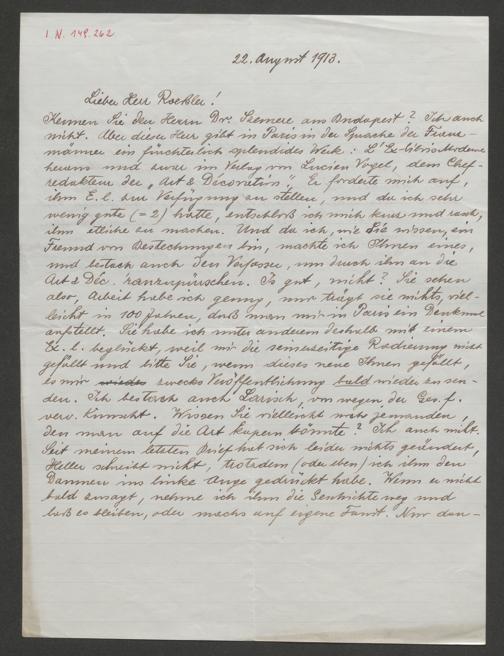 I. N. 149.262
22. August 1913.
Lieber Herr Roessler!
Kennen Sie den Herrn Dr. Szemere aus Budapest? Ich auch
nicht. Aber dieser Herr gibt in Paris in der Sprache der Franz-
männer ein fürchterlich splendides Werk: L'Ex-libris Moderne
heraus und zwar im Verlag von Lucien Vogel, dem Chef-
redakteur der „Art & Décoration". Er forderte mich auf,
ihm E. l. zur Verfügung zu stellen, und da ich sehr
wenig gute (= 2) hatte, entschloß ich mich kurz und rasch,
ihm etliche zu machen. Und da ich, wie Sie wissen, ein
Freund von Bestechungen bin, machte ich Ihnen eines,
und bestach auch den Verfasser, um durch ihn an die
Art & Déc. ranzupürschen. Is gut, nicht? Sie sehen
also, Arbeit habe ich genug, nur trägt sie nichts, viel-
leicht in 100 Jahren, daß man mir in Paris ein Denkmal
aufstellt. Sie habe ich unter anderem deshalb mit einem
Ex. l. beglückt, weil mir die seinerzeitige Radierung nicht
gefällt und bitte Sie, wenn dieses neue Ihnen gefällt,
es mir wieder zwecks Veröffentlichung bald wieder zu sen-
den. Ich bestach auch Larisch, von wegen der Ges. f.
verv. Kunst. Wissen Sie vielleicht noch jemanden,
den man auf die Art könnte? Ich auch nicht.
Seit meinem letzten Brief hat sich leider nichts geändert,
Heller schreibt nicht, trotzdem (oder eben) ich ihm den
Daumen ins linke Auge gedrückt habe. Wenn er nicht
bald zusagt, nehme ich ihm die Geschichte weg und
laß es bleiben, oder machs auf eigene Faust. Nur dan-